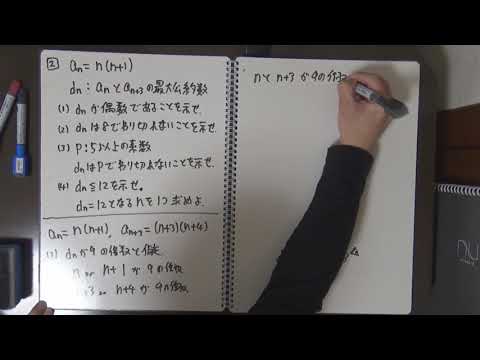 2 an = n(n+1)
dn : anとan+3の最大公約数
(1) dnが偶数であることを示せ
(2) dnは8でわり切れないことを示せ
(3) P : 5以上の素数
dnはPでわり切れないことを示せ.
(4) dn ≦ 12を示せ。
dn=12となるnを1つ求めよ.
an = n(n+1), an+3 = (n+3)(n+4)
dnが9の倍数と仮定
n or n+1が9の倍数
n+4が9の倍数
nとn+3が9の倍